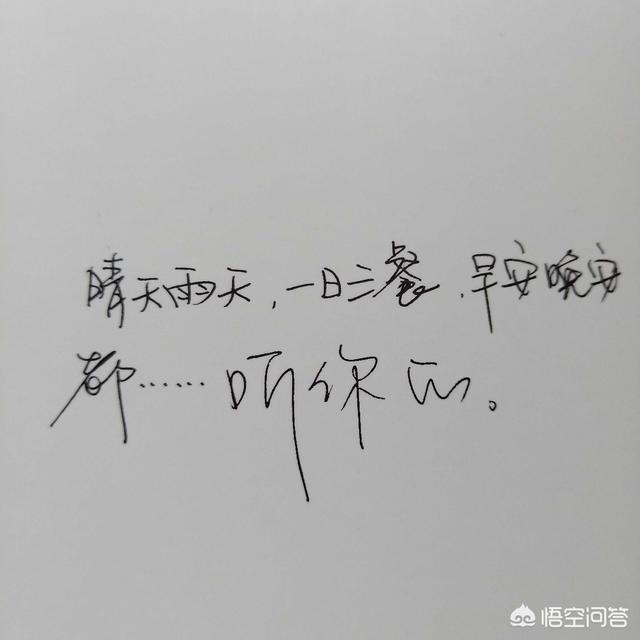 晴天雨天,一日三餐,早安晚安
都……听你的。
悟空问答